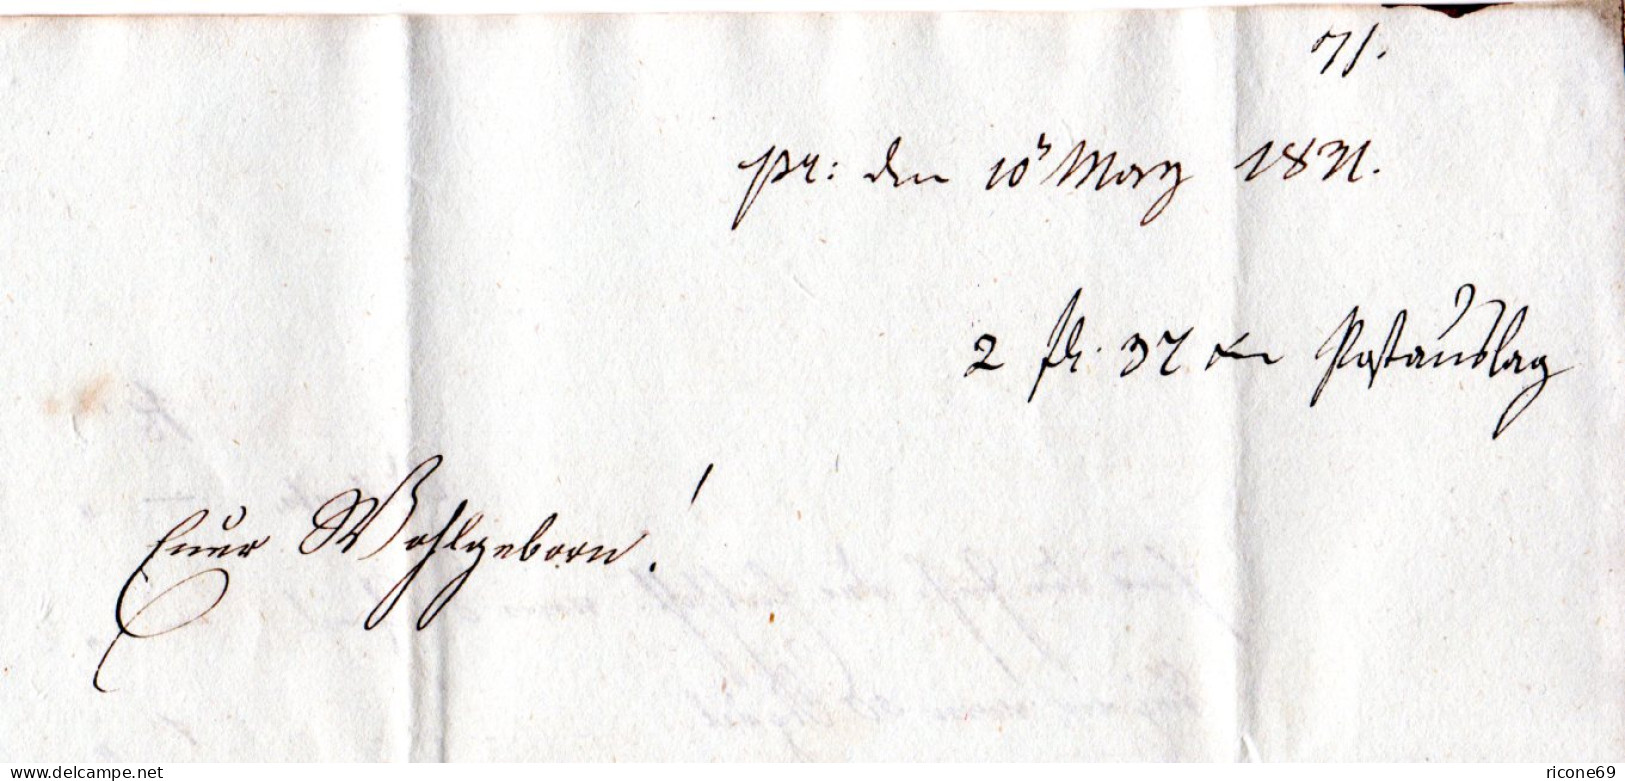 71.
pr: den 10t May 1831.
2 fl. 37 xr Postauslag
Euer Wohlgeborn!
delcampe.net
ricone69